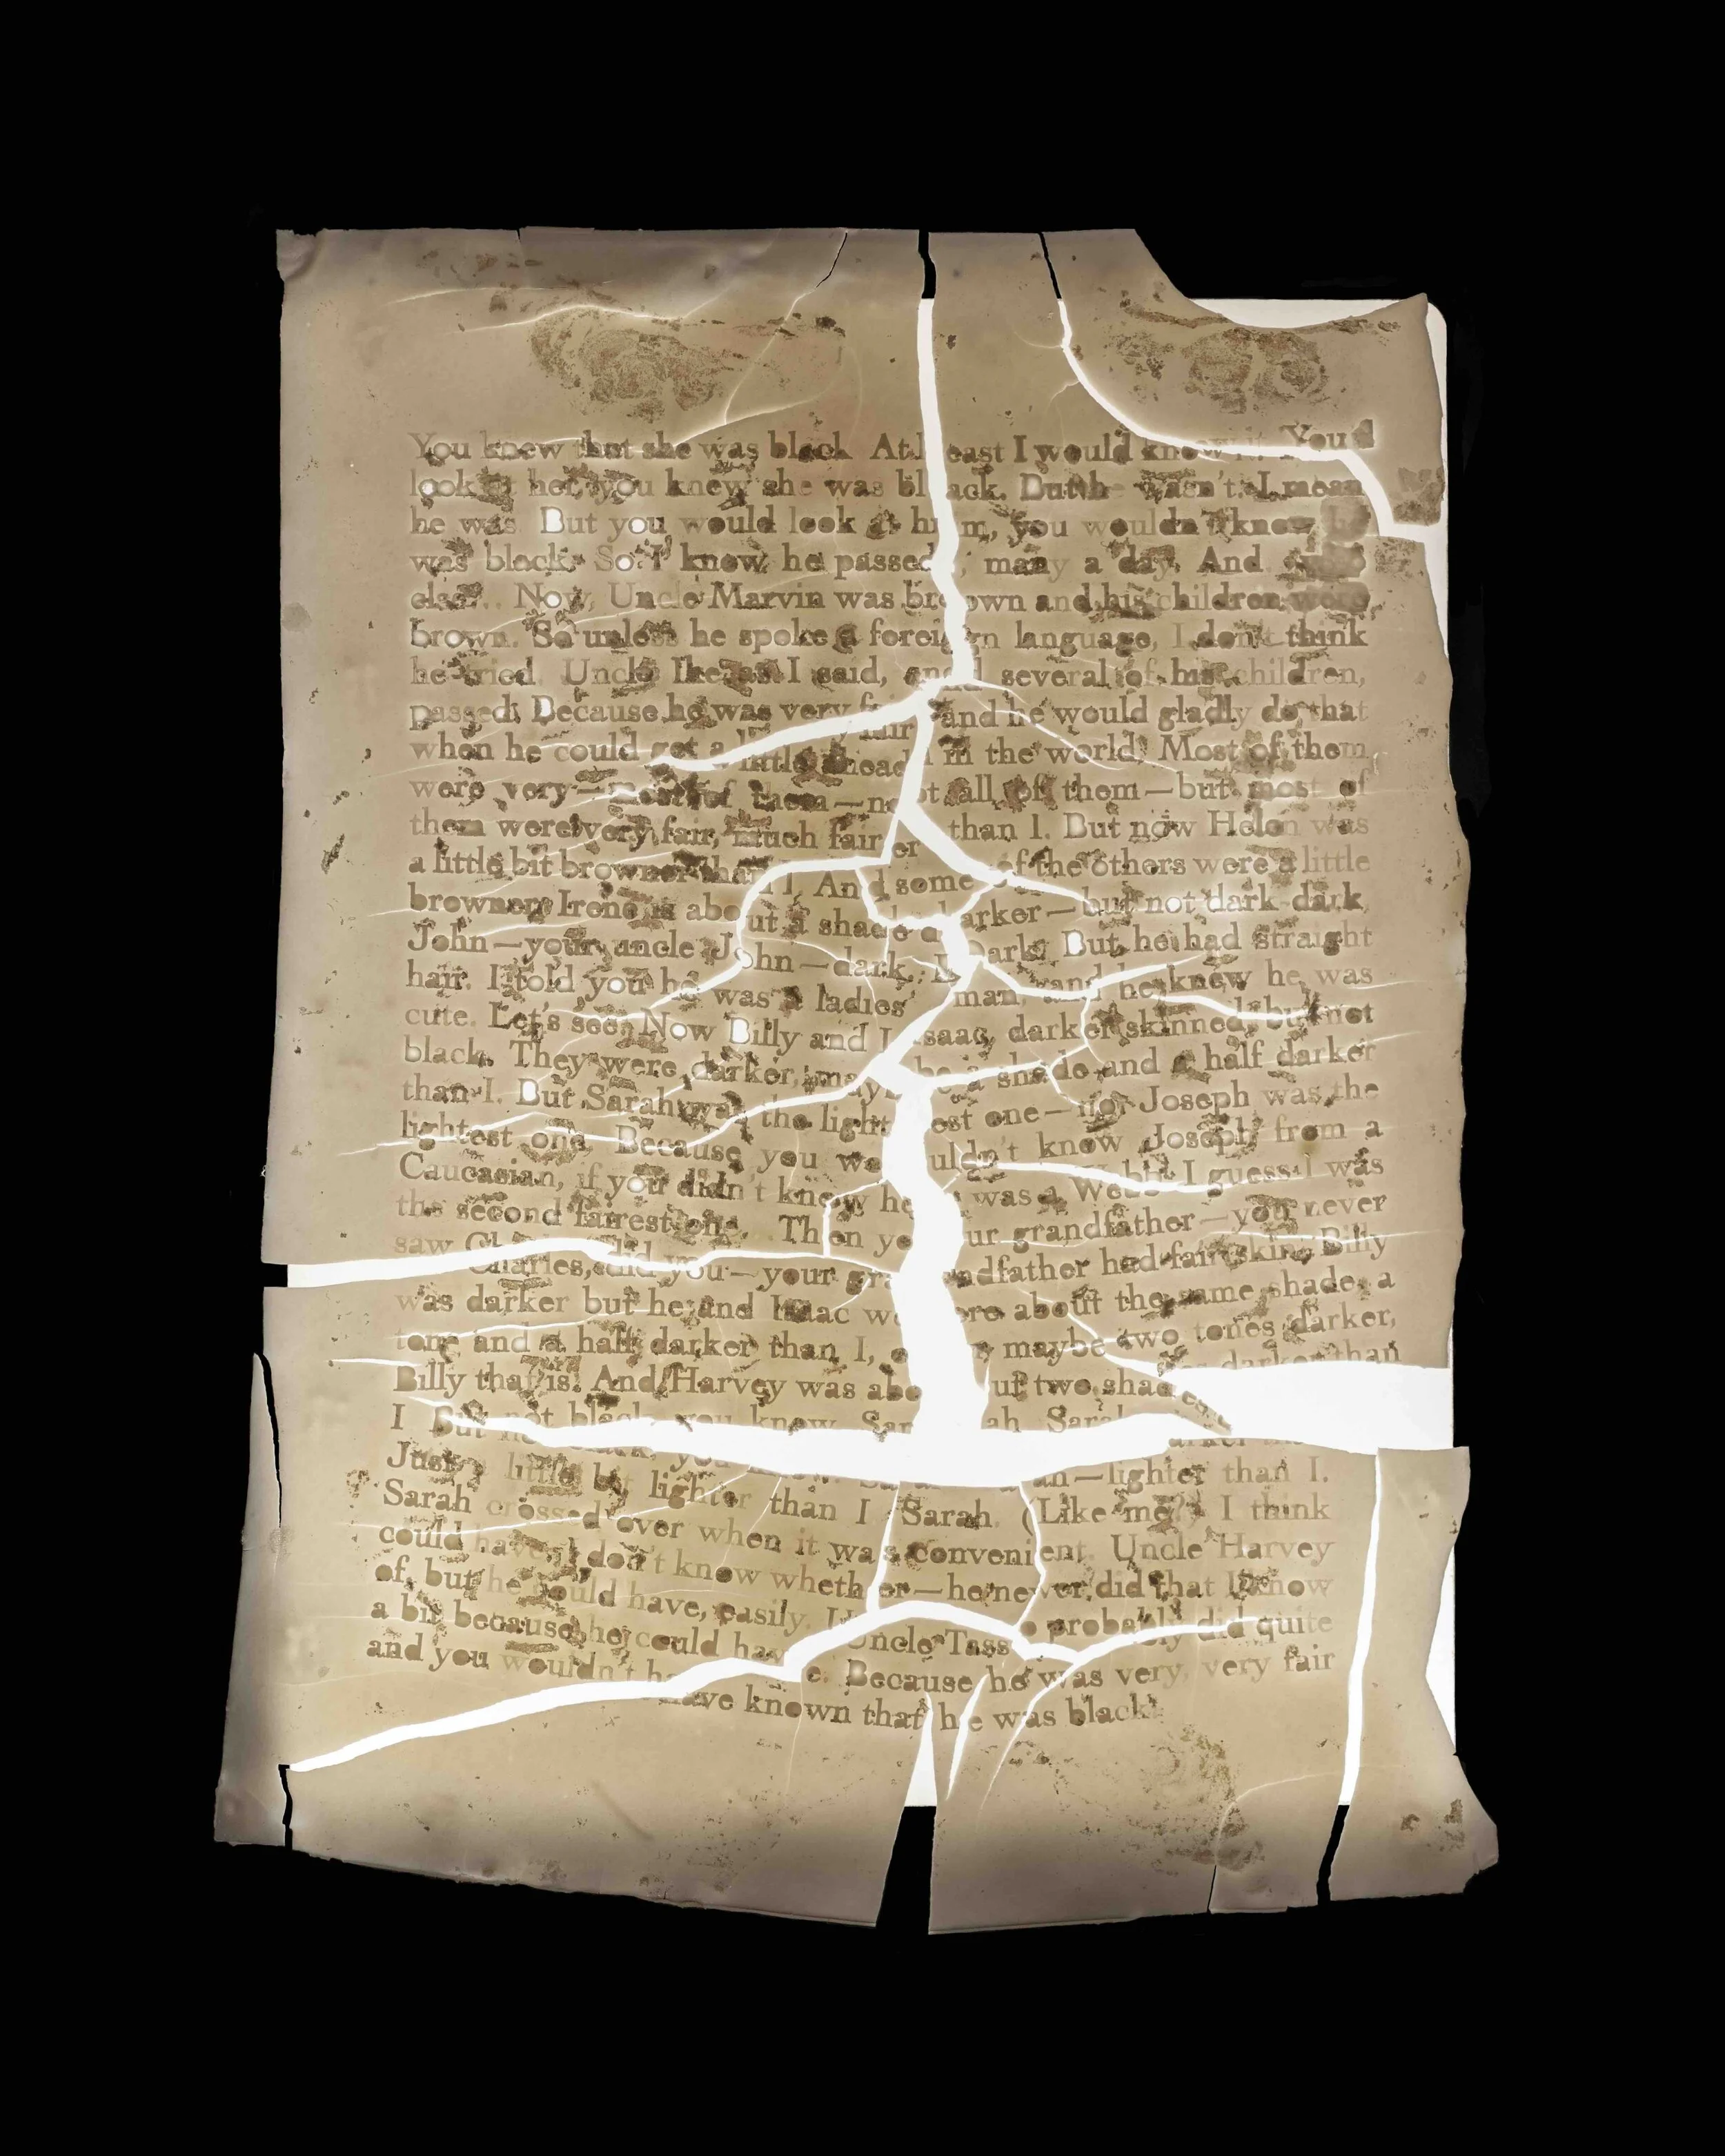 You knew that she was black. At least I would know it. You
look at her, you knew she was black. But he wasn't. I mean
he was. But you would look at him, you wouldn't know he
was black. So I know he passed, many a day. And
else... Now, Uncle Marvin was brown and his children were
brown. So unless he spoke a foreign language, I don't think
he tried. Uncle Ike, as I said, and several of his children,
passed. Because he was very fair and he would gladly do that
when he could get a little ahead in the world. Most of them
were very—most of them—not all of them—but most of
them were very fair, much fairer than I. But now Helen was
a little bit browner than I. And some of the others were a little
browner. Irene is about a shade darker—but not dark-dark.
John—your uncle John—dark. Dark. But he had straight
hair. I told you he was a ladies' man, and he knew he was
cute. Let's see, Now Billy and Isaac, darker skinned, but not
black. They were darker, maybe a shade and a half darker
than I. But Sarah was the lightest one—no, Joseph was the
lightest one. Because you wouldn't know Joseph from a
Caucasian, if you didn't know he was a Webb. I guess I was
the second fairest one. Then your grandfather—you never
saw Charles, did you—your grandfather had fair skin. Billy
was darker but he and Isaac were about the same shade, a
tone and a half darker than I, maybe two tones darker,
Billy that is. And Harvey was about two shades darker than
I. But not black, you know. Sarah. Sarah—lighter than I.
Just a little bit lighter than I. Sarah. (Like me?) I think
Sarah crossed over when it was convenient. Uncle Harvey
could have, I don't know whether—he never did that I know
of, but he could have, easily. Uncle Tass probably did quite
a bit because he could have. Because he was very, very fair
and you wouldn't have known that he was black.